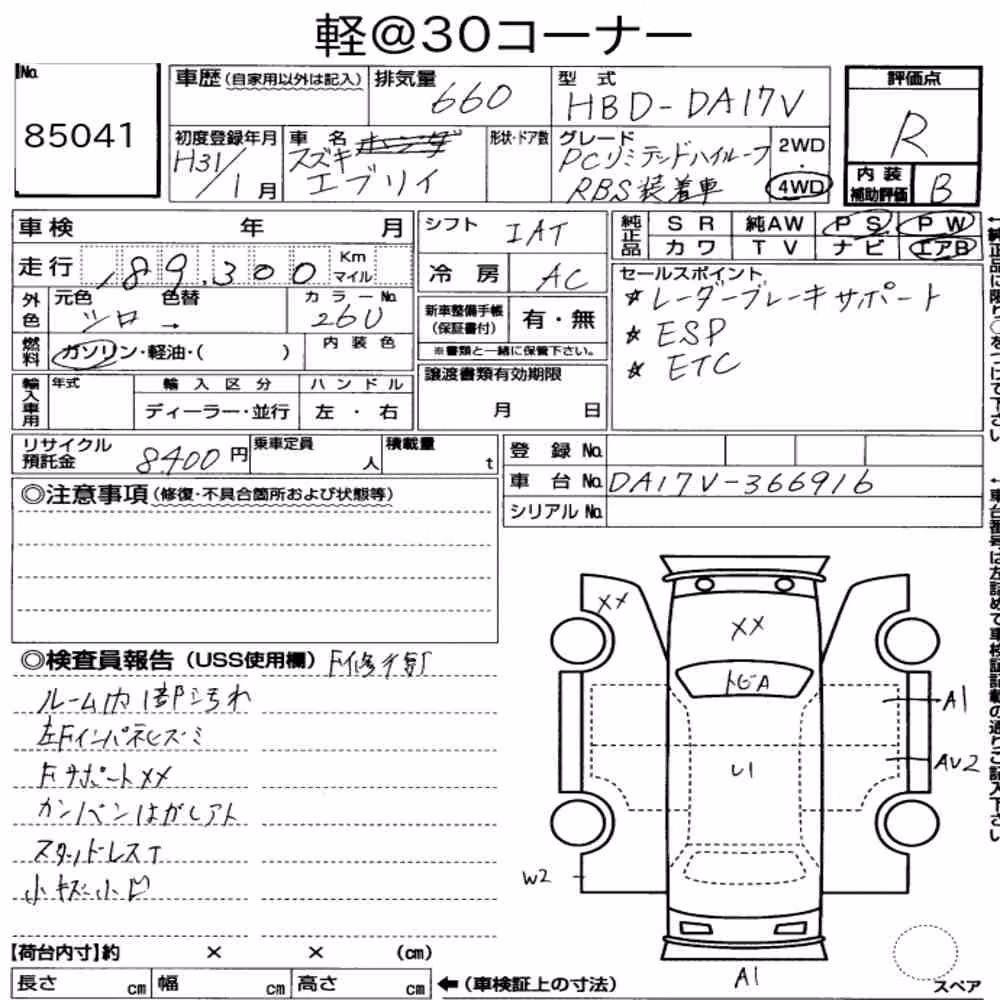 軽@30コーナー
No. 85041
車歴(自家用以外は記入)
排気量 660
型 式 HBD-DA17V
評価点 R
初度登録年月 H31/1月
車 名 スズキ ホンダ エブリイ
形状・ドア数
グレード PCリミテッドハイルーフ RBS装着車
2WD・4WD
内装補助評価 B
車検 年 月
シフト IAT
純正品 SR 純AW PS PW
カワ TV ナビ エアB
走行 189,300 Km マイル
冷 房 AC
セールスポイント
☆レーダーブレーキサポート
☆ESP
☆ETC
外色 元色 シロ → 色替
カラーNo. 26U
新車整備手帳(保証書付) 有・無
※書類と一緒に保管下さい。
燃料 ガソリン・軽油・( )
内装色
輸入車用 年式 輸入区分 ハンドル
ディーラー・並行 左・右
譲渡書類有効期限
月 日
リサイクル預託金 8400円
乗車定員 人
積載量 t
登 録 No.
車 台 No. DA17V-366916
シリアル No.
◎注意事項(修復・不具合箇所および状態等)
◎検査員報告(USS使用欄)
ルーム内
左Fインパネ
FサポートXX
カンバンはがしアト
スタッドレスT
小キズ小凹
XX
XX
トビA
U1
A1
AU2
W2
A1
【荷台内寸】約 × × (cm)
長さ cm 幅 cm 高さ cm
←(車検証上の寸法)
スペア
←純正品に限り○をつけて下さい
←車台番号は左詰めで車検証記載の通りご記入下さい